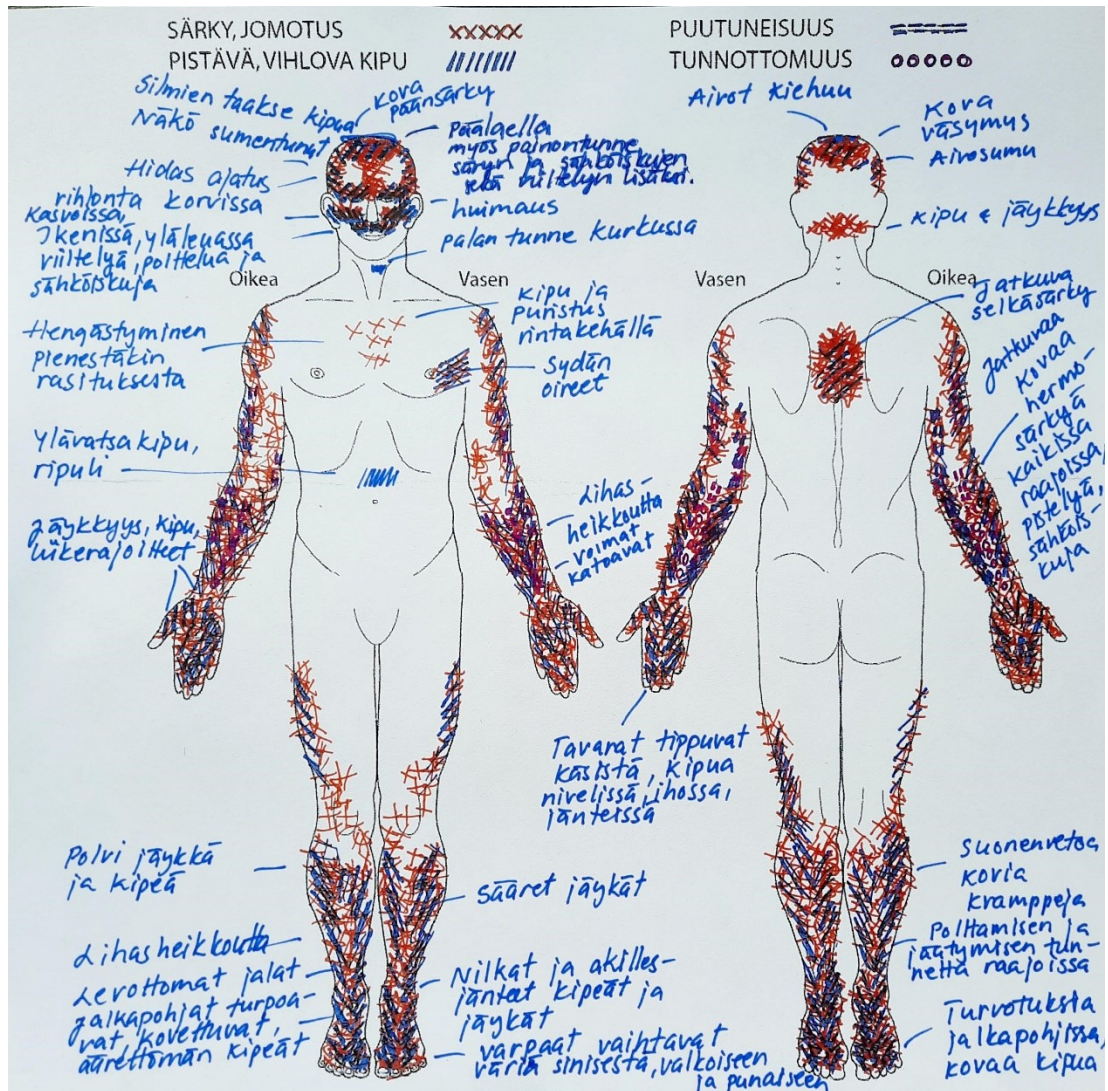 SÄRKY, JOMOTUS xxxxx
PISTÄVÄ, VIHLOVA KIPU
PUUTUNEISUUS
TUNNOTTOMUUS ooooo
Silmien taakse kipua
Näkö sumentunut
kova
päänsärky
Päälaella
myös painontunne
säryn ja sähköiskujen
sekä viiltelyn lisäksi.
Hidas ajatus
vihlonta korvissa
Kasvoissa,
Ikenissä, yläleuassa
viiltelyä, polttelua ja
sähköiskuja
huimaus
palan tunne kurkussa
Oikea
Vasen
Hengästyminen
pienestäkin
rasituksesta
kipu ja
puristus
rintakehällä
Sydän
oireet
Ylävatsakipu,
ripuli
Jäykkyys, kipu,
liikerajoitteet
Lihas-
heikkoutta
voimat
katoavat
Polvi jäykkä
ja kipeä
sääret jäykät
Lihasheikkoutta
Levottomat jalat
jalkapohjat turpoa-
vat, kovettuvat,
äärettömän kipeät
Nilkat ja akilles-
jänteet kipeät ja
jäykät
varpaat vaihtavat
väriä sinisestä, valkoiseen
ja punaiseen
Aivot kiehuu
Kova
väsymys
Aivosumu
Kipu & jäykkyys
Vasen
Oikea
Jatkuva
selkäsärky
Jatkuvaa
kovaa
hermo-
särkyä
kaikissa
raajoissa,
pistelyä,
sähköis-
kuja
Tavarat tippuvat
käsistä, kipua
nivelissä, ihossa,
jänteissä
suonenvetoa
kovia
kramppeja
Polttamisen ja
jäätymisen tun-
netta raajoissa
Turvotuksia
jalkapohjissa,
kovaa kipua